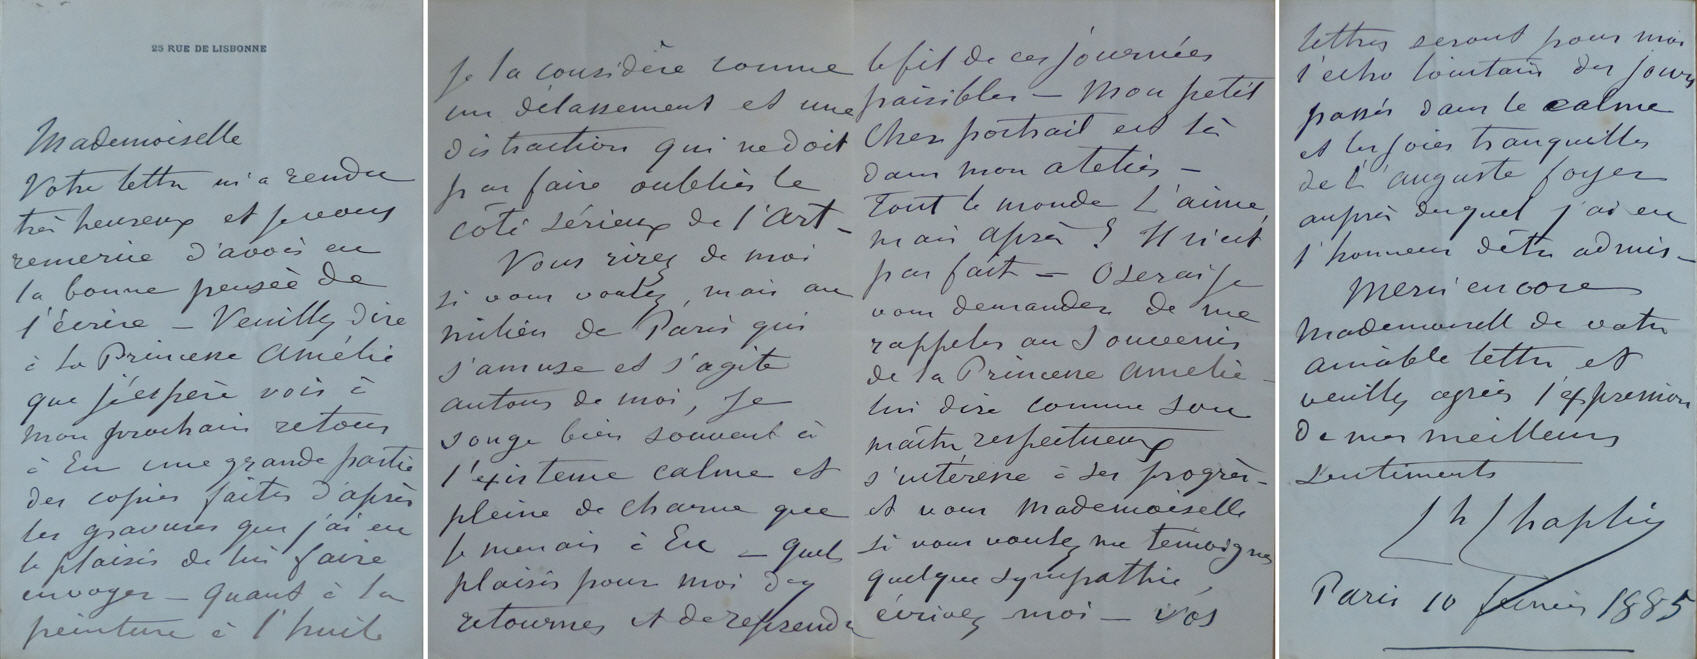 25 RUE DE LISBONNE
Mademoiselle
Votre lettre m'a rendu
très heureux et je vous
remercie d'avoir eu
la bonne pensée de
l'écrire — Veuillez dire
à la Princesse Amélie
que j'espère voir à
mon prochain retour
à Eu une grande partie
des copies faites d'après
les gravures que j'ai eu
le plaisir de lui faire
envoyer — Quant à la
peinture à l'huile
je la considère comme
un délassement et une
distraction qui ne doit
pas faire oublier le
côté sérieux de l'Art —
Vous rirez de moi
si vous voulez, mais au
milieu de Paris qui
s'amuse et s'agite
autour de moi, je
songe bien souvent à
l'existence calme et
pleine de charme que
je menais à Eu — Quel
plaisir pour moi d'y
retourner et de reprendre
le fil de ces journées
paisibles — Mon petit
cher portrait est là
dans mon atelier —
Tout le monde l'aime,
mais après ? Il n'est
pas fait — Oserai je
vous demander de me
rappeler au souvenir
de la Princesse Amélie —
lui dire comme son
maître respectueux
s'intéresse à ses progrès —
et vous Mademoiselle
si vous voulez me témoigner
quelque sympathie,
écrivez moi — Vos
lettres seront pour moi
l'écho lointain des jours
passés dans le calme
et les joies tranquilles
de l'auguste foyer
auprès duquel j'ai eu
l'honneur d'être admis —
Merci encore
Mademoiselle de votre
aimable lettre et
veuillez agréer l'expression
de mes meilleurs
sentiments
Ch Chaplin
Paris 10 février 1885